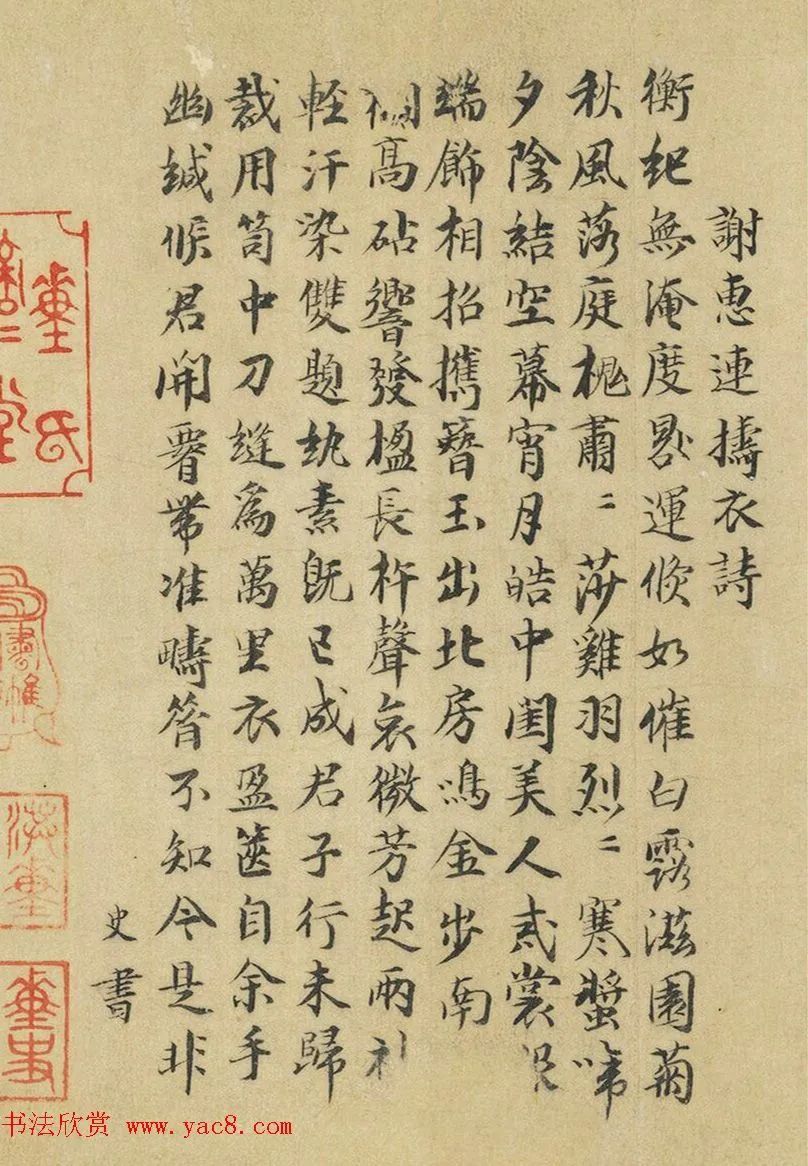 謝惠連擣衣詩
衡紀無淹度晷運倏如催白露滋園菊
秋風落庭槐肅〻莎雞羽烈〻寒螿啼
夕陰結空幕宵月皓中閨美人戒裳
端飾相招攜簪玉出北房鳴金步南
高砧響發楹長杵聲哀微芳起兩
輕汗染雙題紈素既已成君子行未歸
裁用笥中刀縫爲萬里衣盈篋自余手
幽緘候君開腰帶准疇昔不知今是非
史書
董氏
董史
书法欣赏 www.yac8.com